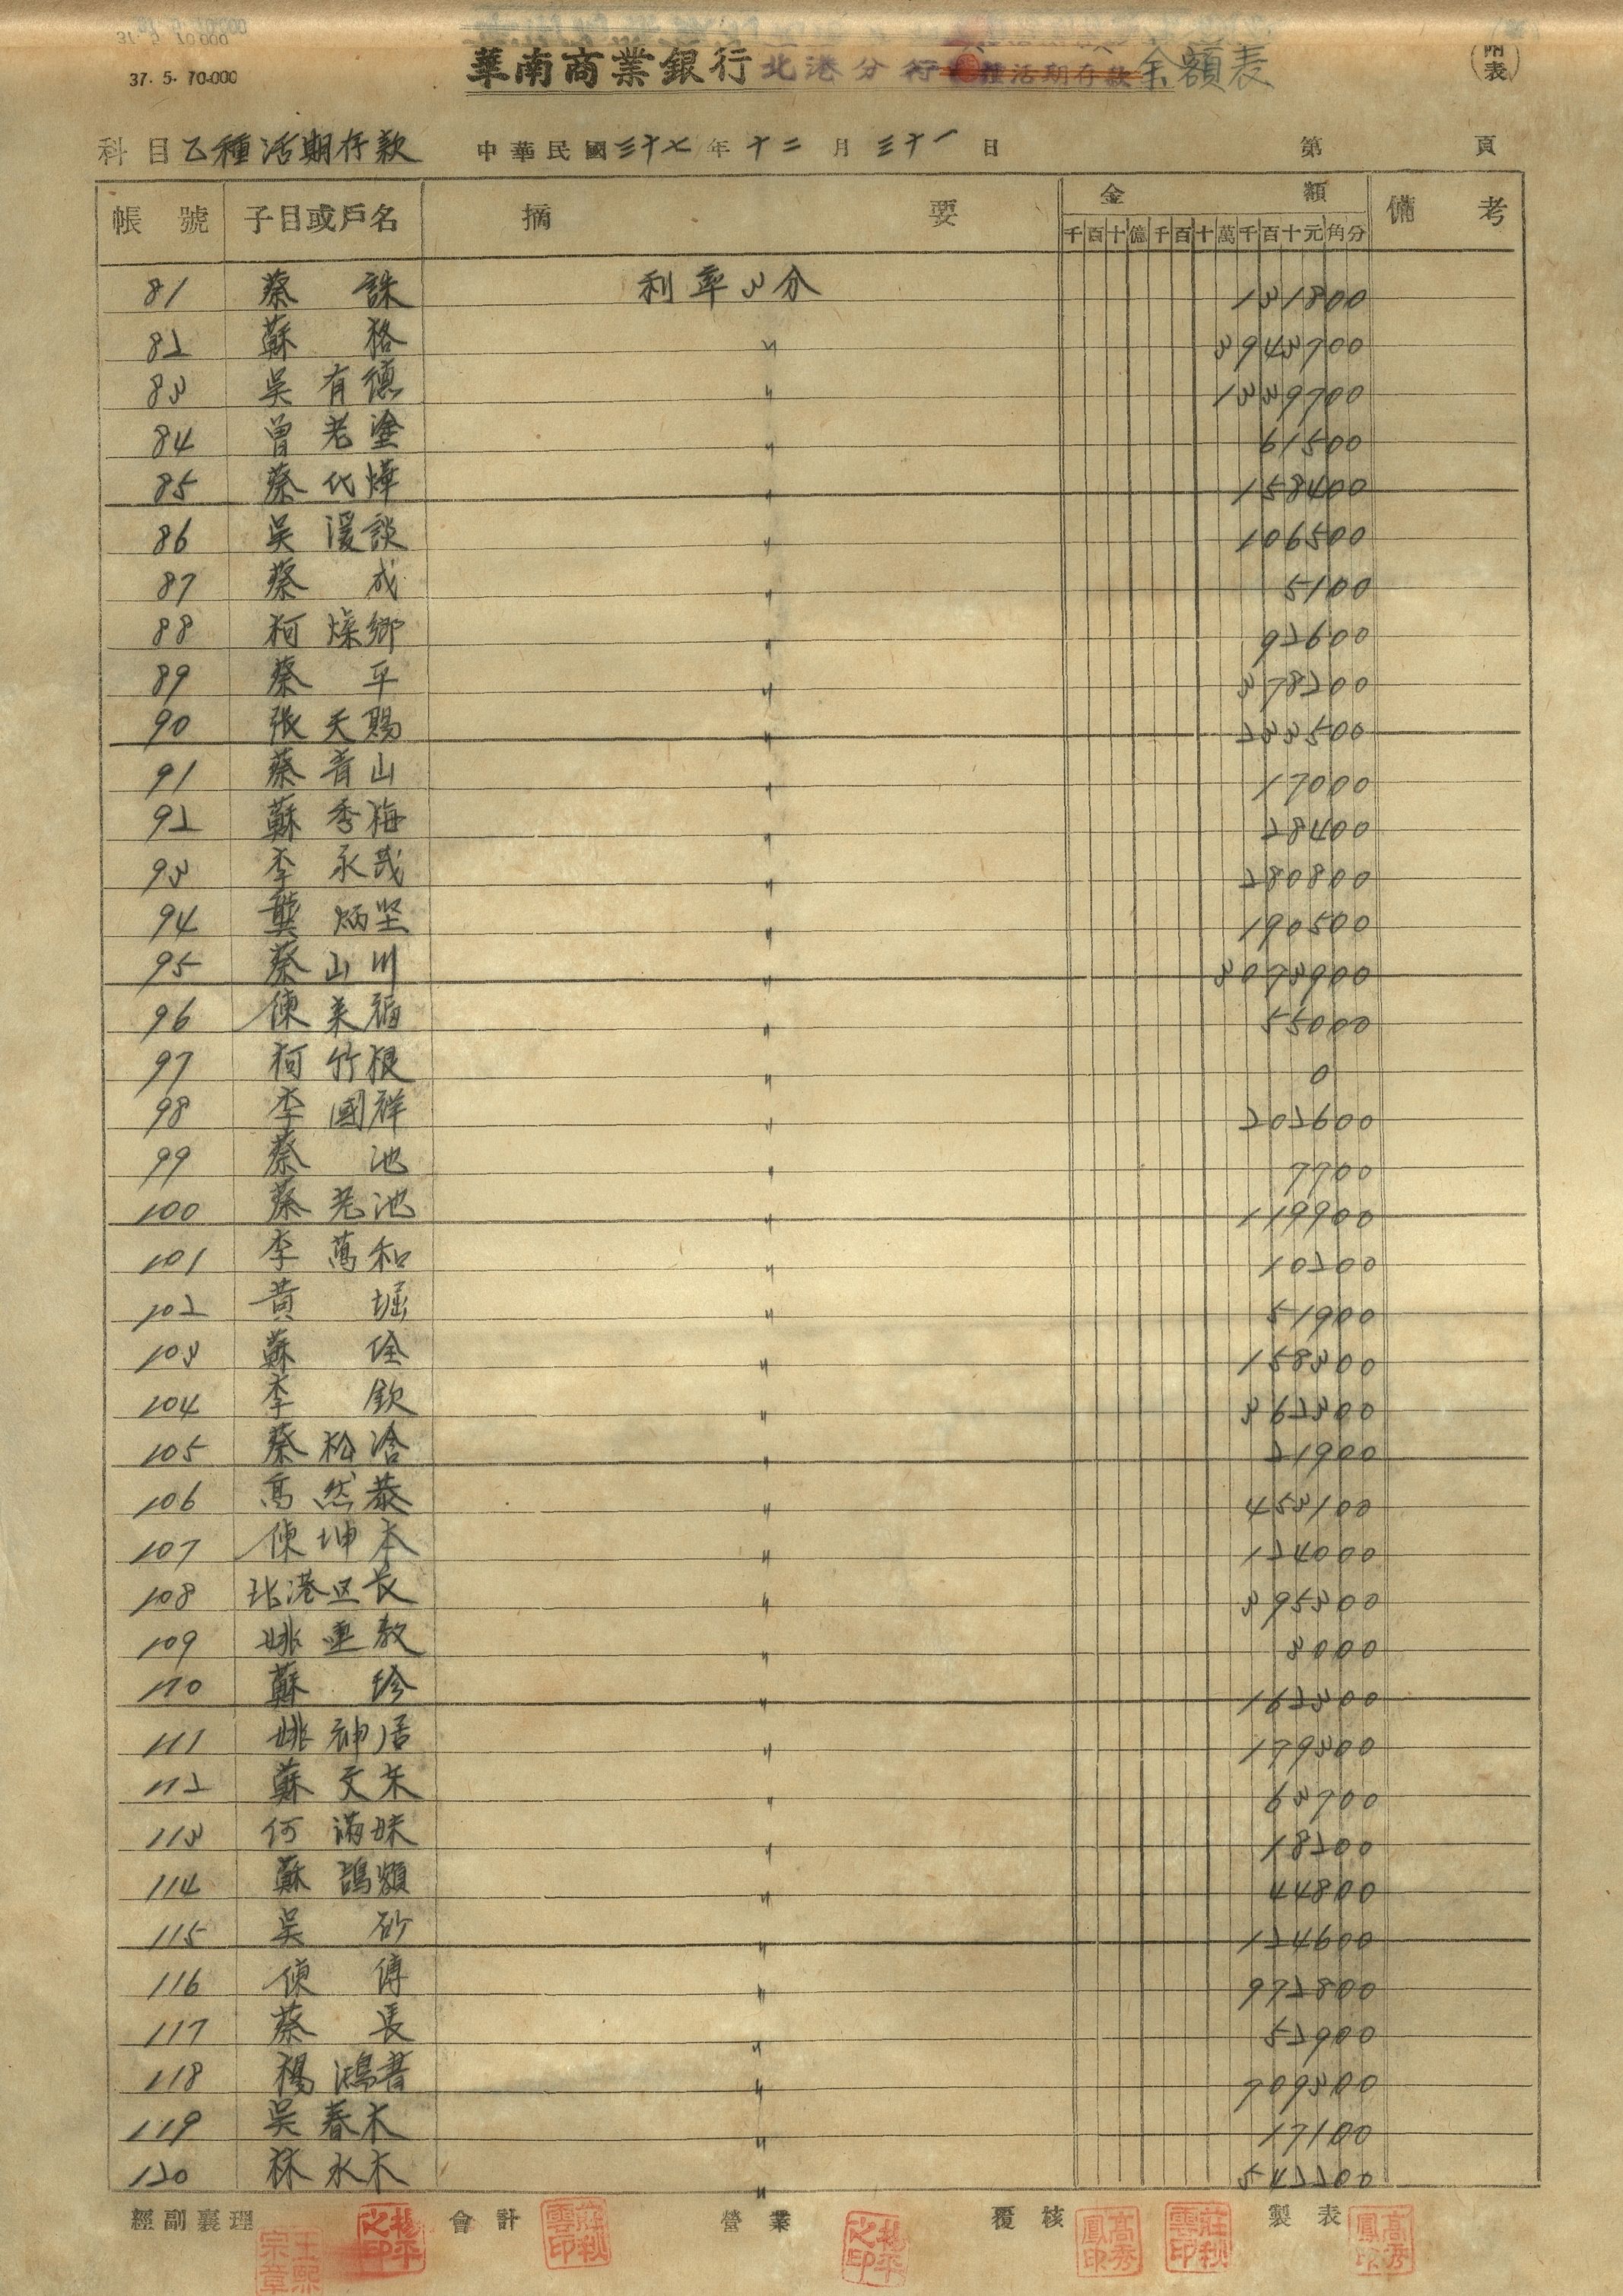 37. 5. 10.000
華南商業銀行北港分行 種活期存款余額表
(附表)
科目乙種活期存款 中華民國三十七年十二月三十一日 第 頁
帳號 子目或戶名 摘要 金額 備考
千百十億千百十萬千百十元角分
81 蔡 誅 利率3分 131800
82 蘇 格 〃 3943700
83 吳有德 〃 1339700
84 曾老塗 〃 61500
85 蔡代燁 〃 158400
86 吳湲談 〃 106500
87 蔡 成 〃 5100
88 柯燦鄉 〃 92600
89 蔡 平 〃 378200
90 張天賜 〃 233500
91 蔡 山 〃 17000
92 蘇秀梅 〃 28400
93 李永哉 〃 280800
94 龔炳坚 〃 190500
95 蔡山川 〃 3073900
96 陳来福 〃 55000
97 柯竹根 〃 0
98 李國祥 〃 202600
99 蔡 池 〃 7700
100 蔡老池 〃 119900
101 李萬和 〃 10200
102 黃 堀 〃 51900
103 蘇 〃 158300
104 李 欽 〃 362300
105 蔡松 〃 21900
106 高然恭 〃 453100
107 陳坤本 〃 124000
108 北港区長 〃 395300
109 姚連教 〃 3000
110 蘇 珍 〃 162300
111 姚神居 〃 179300
112 蘇文朱 〃 63700
113 何滿妹 〃 18200
114 蘇 〃 44800
115 吳 砂 〃 124600
116 陳 傳 〃 972800
117 蔡 長 〃 52900
118 楊鴻書 〃 709300
119 吳春木 〃 17100
120 林水木 〃 547700
經副襄理 會計 營業 覆核 製表
王熙宗章 楊平之印 莊秋雲印 楊平之印 高秀鳳印 莊秋雲印 高秀鳳印